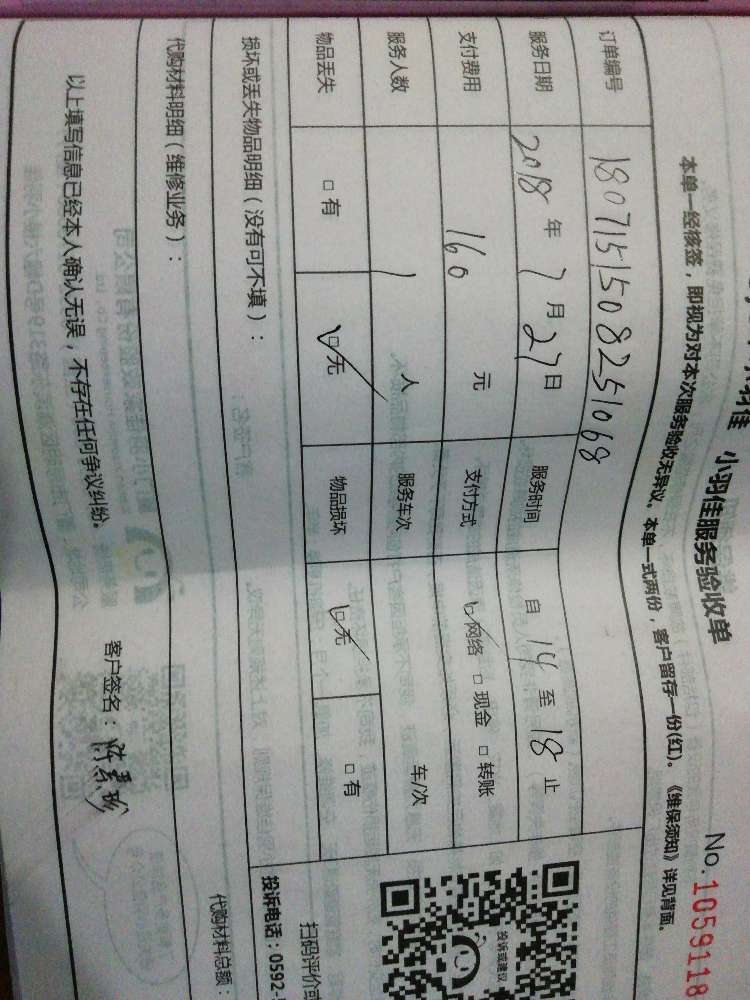 小羽佳服务验收单
No.1059118
本单一经核签，即视为对本次服务验收无异议。本单一式两份，客户留存一份(红)。《维保须知》详见背面。
订单编号 1807151508251068
服务日期 2018年7月27日 服务时间 自14至18止
支付费用 160 元 支付方式 网络 □现金 □转账
服务人数 1 人 服务车次 车/次
物品丢失 □有 □无 物品损坏 □无 □有
损坏或丢失物品明细（没有可不填）：
投诉或建议
扫码评价或
投诉电话：0592-
代购材料明细（维修业务）：
代购材料总额：
以上填写信息已经本人确认无误，不存在任何争议纠纷。
客户签名：